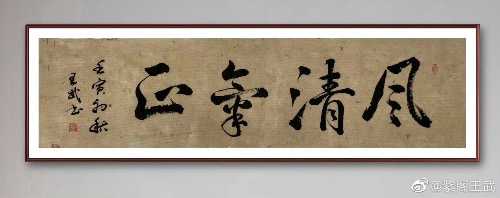 风清氣正
壬寅初秋
王武书
@紫阁王武